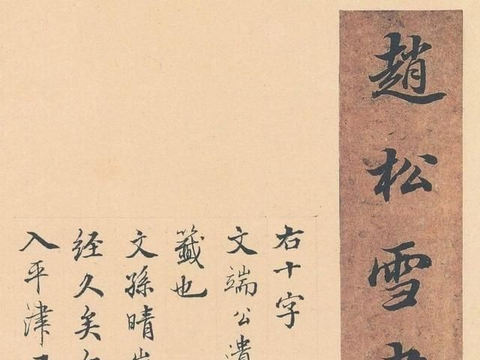 趙松雪
右十字
文端公潰
籤也
文孫晴
經久矣
入平津